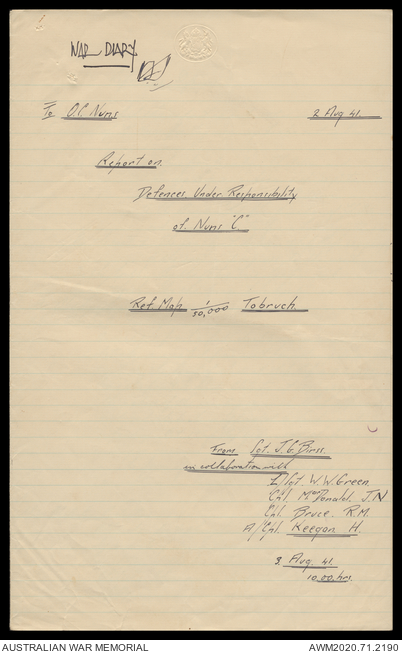 WAR DIARY
To O.C. Nums 2 Aug 41.
Report on
Defences Under Responsibility
of Nums "C"
Ref Map 1/50,000 Tobruch
From Sgt. J.G. Birss
in collaboration with
L/Sgt. W.W. Green
Cpl. MacDonald. J.N
Cpl. Bruce. R.M.
A/Cpl. Keegan H.
3 Aug. 41.
10.00 hrs.
AUSTRALIAN WAR MEMORIAL AWM2020.71.2190